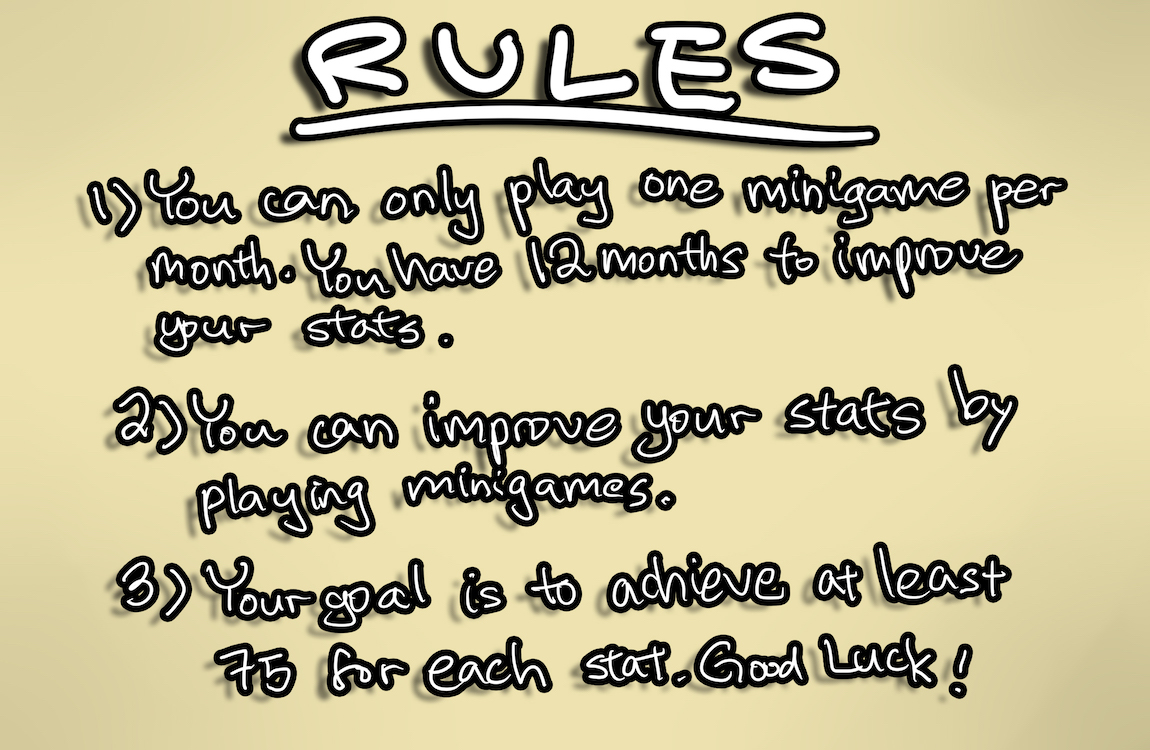 RULES
1) You can only play one minigame per
month. You have 12 months to improve
your stats.
2) You can improve your stats by
playing minigames.
3) Your goal is to achieve at least
75 for each stat. Good Luck!